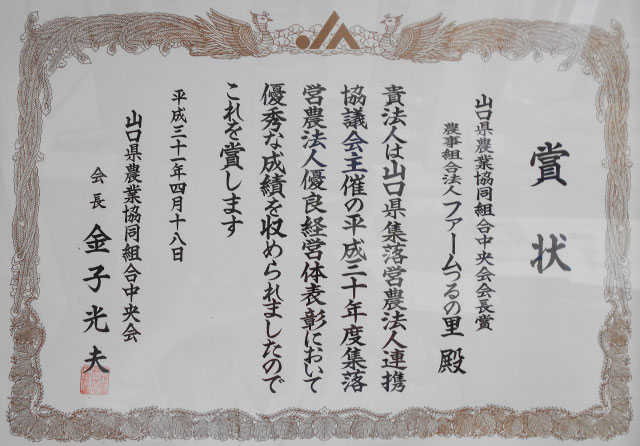 賞状
山口県農業協同組合中央会会長賞
農事組合法人 ファームつるの里 殿
貴法人は山口県集落営農法人連携
協議会主催の平成三十年度集落
営農法人優良経営体表彰において
優秀な成績を収められましたので
これを賞します
平成三十一年四月十八日
山口県農業協同組合中央会
会長 金子光夫